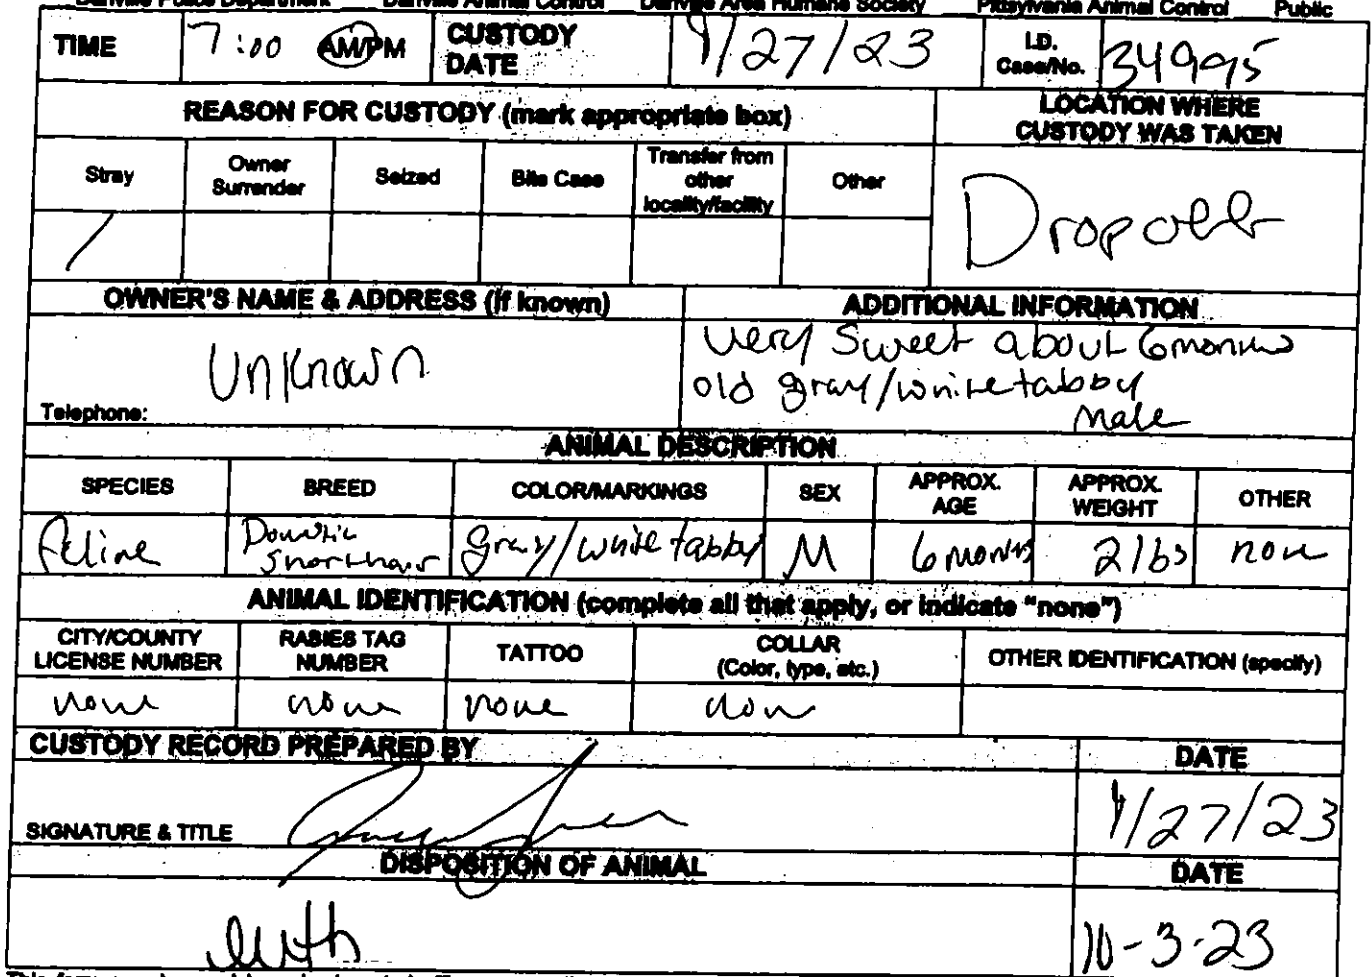 Danville Police Department Danville Animal Control Danville Area Humane Society Pittsylvania Animal Control Public
TIME 7:00 AM/PM CUSTODY DATE 9/27/23 I.D. Case/No. 34995
REASON FOR CUSTODY (mark appropriate box)
LOCATION WHERE
CUSTODY WAS TAKEN
Stray Owner Surrender Seized Bite Case Transfer from other locality/facility Other
/
Drop off
OWNER'S NAME & ADDRESS (if known)
Unknown
Telephone:
ADDITIONAL INFORMATION
very sweet about 6 months
old gray/white tabby
male
ANIMAL DESCRIPTION
SPECIES BREED COLOR/MARKINGS SEX APPROX. AGE APPROX. WEIGHT OTHER
feline Domestic Shorthair gray/white tabby M 6 months 2 lbs none
ANIMAL IDENTIFICATION (complete all that apply, or indicate "none")
CITY/COUNTY LICENSE NUMBER RABIES TAG NUMBER TATTOO COLLAR (Color, type, etc.) OTHER IDENTIFICATION (specify)
none none none none
CUSTODY RECORD PREPARED BY DATE
SIGNATURE & TITLE 9/27/23
DISPOSITION OF ANIMAL DATE
euth 10-3-23